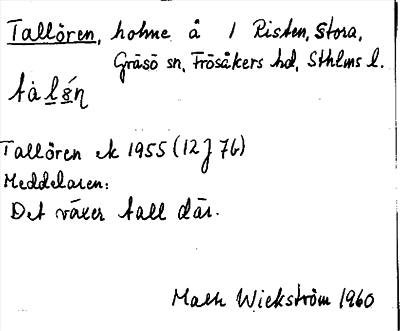 Tallören, holme å 1 Risten, Stora,
Gräsö sn, Frösåkers hd, Sthlms l.
Tallören ek 1955 (12J 7b)
Meddelaren:
Det växer tall där.
Mats Wickström 1960